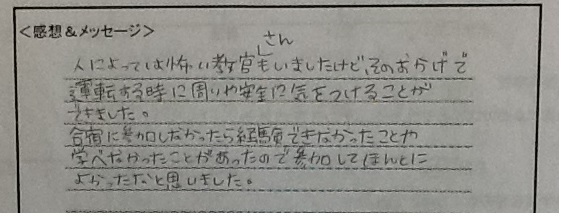 <感想&メッセージ>
人によっては怖い教官さんもいましたけど、そのおかげで
運転する時に周りや安全に気をつけることが
できました。
合宿に参加しなかったら経験できなかったことや
学べなかったことがあったので参加してほんとに
よかったなと思いました。